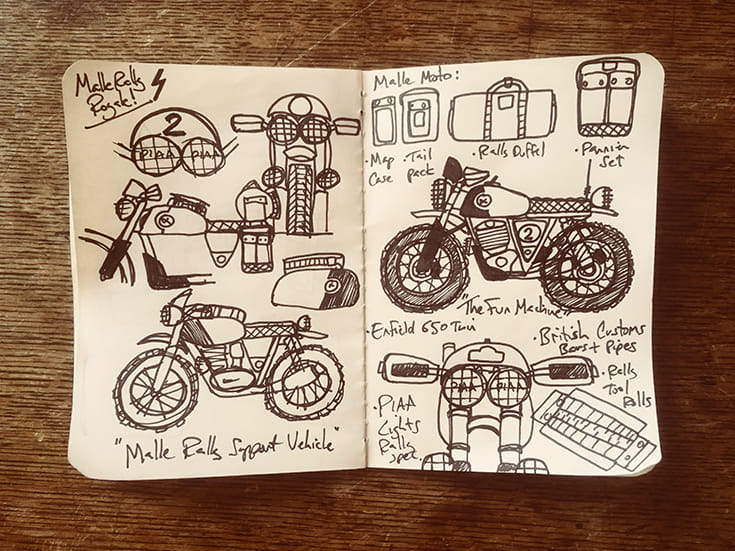 Malle Rally
Royale!
2
PIAA PIAA
"Malle Rally Support Vehicle"
Malle Moto:
• Map
Case
• Tail
pack
• Rally Duffel
• Pannier
Set
2
"The Fun Machine"
• Enfield 650 Twin
• British Customs
Bars + Pipes
• Rally
Tool
Rolls
PIAA PIAA
• PIAA
Lights
Rally
Spec.